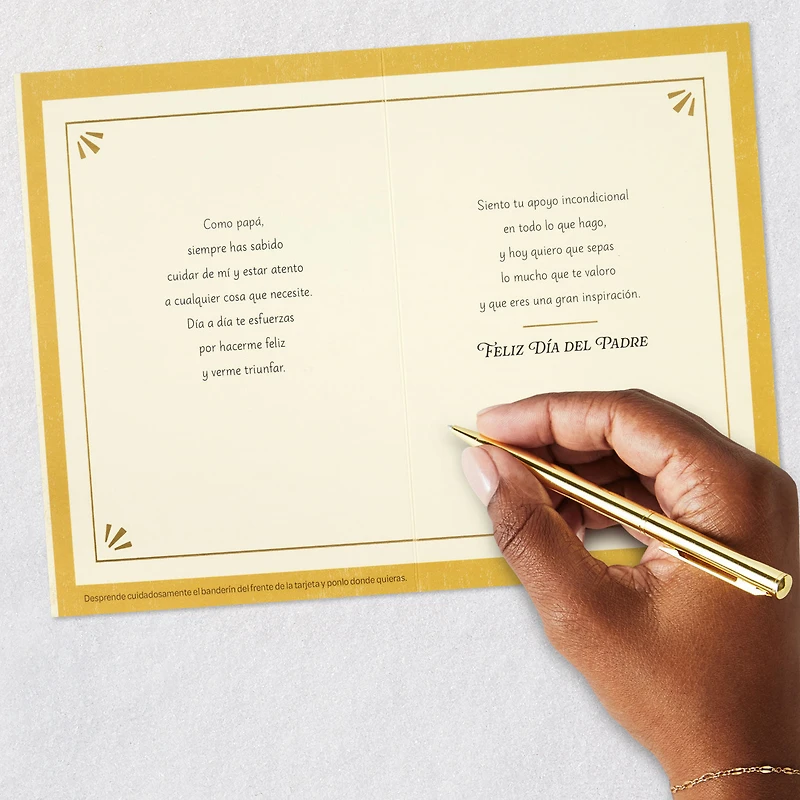 Como papá,
siempre has sabido
cuidar de mí y estar atento
a cualquier cosa que necesite.
Día a día te esfuerzas
por hacerme feliz
y verme triunfar.
Siento tu apoyo incondicional
en todo lo que hago,
y hoy quiero que sepas
lo mucho que te valoro
y que eres una gran inspiración.
FELIZ DÍA DEL PADRE
Desprende cuidadosamente el banderín del frente de la tarjeta y ponlo donde quieras.